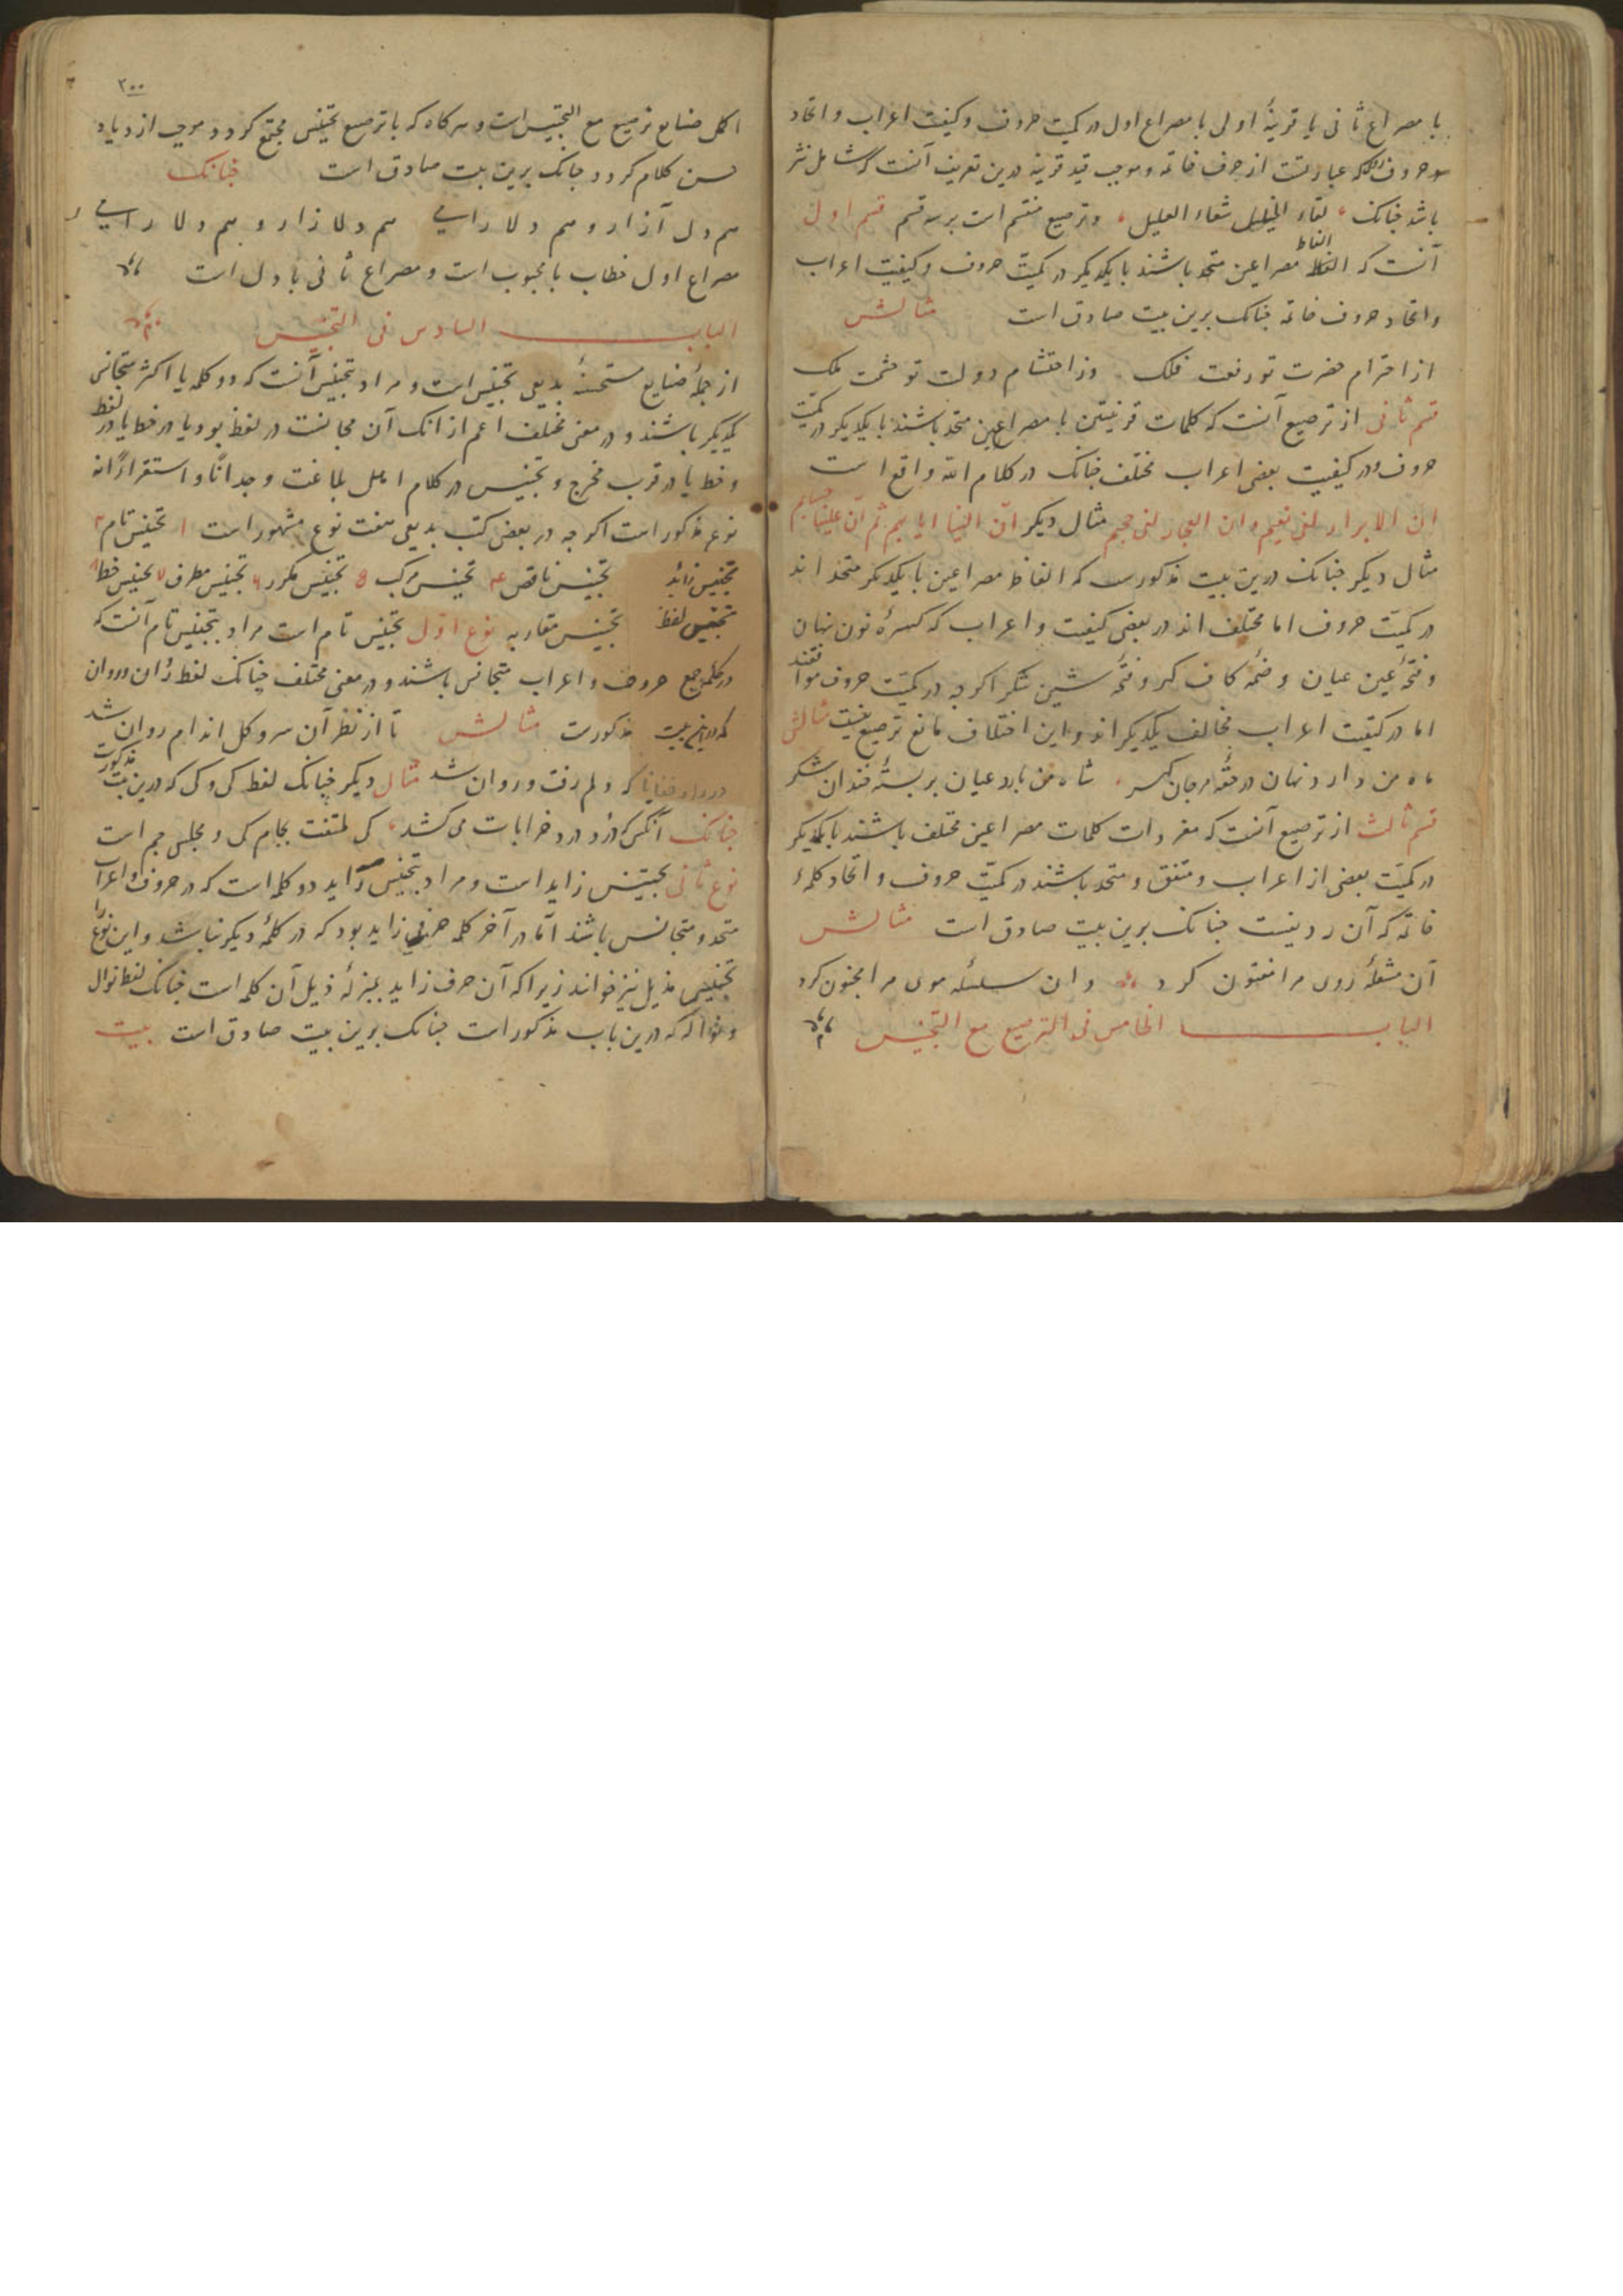 با مصراع ثانی یا قرینهٔ اولی با مصراع اول در کمیت حروف و کیفیت اعراب و اتحاد
حروف که عبارتست از حرف خاتمه و موجب قید قرینه درین تعریف آنست که شامل نثر
باشد چنانک لقاء الخلیل شفاء العلیل و ترصیع منقسم است برسه قسم قسم اول
آنست که الفاظ مصراعین متحد باشند با یکدیکر در کمیت حروف و کیفیت اعراب
الفاظ
و اتحاد حروف خاتمه چنانک برین بیت صادق است مثالش
از احترام حضرت تو رفعت فلک وز احتشام دولت تو حشمت ملک
قسم ثانی از ترصیع آنست که کلمات قرینتین یا مصراعین متحد باشند با یکدیکر در کمیّت
حروف و در کیفیت بعضی اعراب مختلف چنانک در کلام الله واقع است
ان الابرار لفی نعیم وان الفجار لفی جحیم مثال دیکر ان الینا ایابهم ثم ان علینا حسابهم
مثال دیکر چنانک درین بیت مذکورست که الفاظ مصراعین با یکدیکر متحد اند
در کمیّت حروف اما مختلف اند در بعضی کیفیت و اعراب که کسرهٔ نون نهان
و فتحهٔ عین عیان و ضمهٔ کاف کهر و فتحهٔ شین شکر اکرچه در کمیّت حروف موافقند
اما در کیفیت اعراب مخالف یکدیکر اند و این اختلاف مانع ترصیع نیست مثالش
ماه من دارد نهان در حقهٔ مرجان کهر شاه من بارد عیان بر پستهٔ خندان شکر
قسم ثالث از ترصیع آنست که مفردات کلمات مصراعین مختلف باشند با یکدیکر
در کمیّت بعضی از اعراب و متفق و متحد باشند در کمیّت حروف و اتحاد کلمهٔ
خاتمه که آن ردیفست چنانک برین بیت صادق است مثالش
آن مشعلهٔ روی مرا مفتون کرد وان سلسلهٔ موی مرا مجنون کرد
الباب الخامس فی الترصیع مع التجنیس
۲۰۰
اکمل صنایع ترصیع مع التجنیس است و هرکاه که با ترصیع تجنیس مجتمع کردد موجب ازدیاد
حسن کلام کردد چنانک برین بیت صادق است چنانک
هم دل آزار و هم دلارامی هم دلا زار و هم دلا رامی
مصراع اول خطاب با محبوب است و مصراع ثانی با دل است
الباب السادس فی التجنیس
از جملهٔ صنایع مستحسنهٔ بدیعی تجنیس است و مراد بتجنیس آنست که دو کلمه یا اکثر متجانس
یکدیکر باشند و در معنی مختلف اعم از انک آن مجانست در لفظ بود یا در خط یا در لفظ
و خط یا در قرب مخرج و تجنیس در کلام اهل بلاغت وجدانًا و استقراءً نه
نوع مذکور است اکرچه در بعضی کتب بدیعی هفت نوع مشهور است ۱ تجنیس تام ۲
تجنیس زائد تجنیس ناقص ۴ تجنیس مرکب ۵ تجنیس مکرر ۶ تجنیس مطرف ۷ تجنیس خط ۸
تجنیس لفظ تجنیس متقاربه نوع اوّل تجنیس تام است مراد بتجنیس تام آنست که
در کلمه جمیع حروف و اعراب متجانس باشند و در معنی مختلف چنانک لفظ روان و روان
که درین بیت مذکورست مثالش تا از نظر آن سرو کل اندام روان شد
که دلم رفت و روان شد مثال دیکر چنانک لفظ کی و کی که درین بیت مذکورست
چنانک آنکس که درد خرابات می کشد کی ملتفت بجام کی و مجلس جم است
نوع ثانی تجنیس زاید است و مراد بتجنیس زاید دو کلمه است که در حروف و اعراب
متحد و متجانس باشند امّا در آخر کلمه حرفی زاید بود که در کلمهٔ دیکر نباشد و این نوع را
تجنیس مذیل نیز خوانند زیرا که آن حرف زاید بمنزلهٔ ذیل آن کلمه است چنانک لفظ نوال
که درین باب مذکور است چنانک برین بیت صادق است بیت